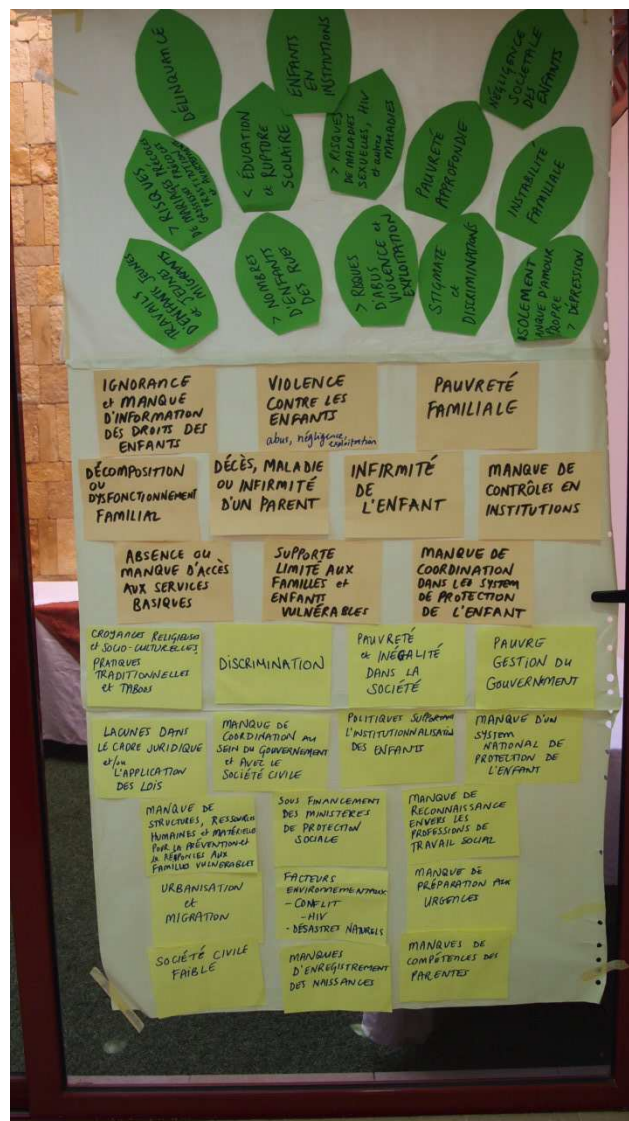 DÉLINQUANCE
ENFANTS
EN
INSTITUTIONS
NÉGLIGENCE
SOCIETALE
DES
ENFANTS
> RISQUES
DE MARIAGES PRÉCOCES
< ÉDUCATION
et RUPTURE
SCOLAIRE
> RISQUES
DE MALADIES
SEXUELLES, HIV
et autres
MALADIES
PAUVRETÉ
APPROFONDIE
INSTABILITÉ
FAMILIALE
TRAVAILS
D'ENFANTS JEUNES
et JEUNES
MIGRANTS
> NOMBRES
D'ENFANTS
DES RUES
> RISQUES
D'ABUS
VIOLENCE et
EXPLOITATION
STIGMATE
et
DISCRIMINATIONS
ISOLEMENT
MANQUE D'AMOUR
PROPRE
> DÉPRESSION
IGNORANCE
et MANQUE
D'INFORMATION
DES DROITS DES
ENFANTS
VIOLENCE
CONTRE LES
ENFANTS
abus, négligence, exploitation
PAUVRETÉ
FAMILIALE
DÉCOMPOSITION
OU
DYSFONCTIONNEMENT
FAMILIAL
DÉCÈS, MALADIE
OU INFIRMITÉ
D'UN PARENT
INFIRMITÉ
DE
L'ENFANT
MANQUE DE
CONTRÔLES EN
INSTITUTIONS
ABSENCE OU
MANQUE D'ACCÈS
AUX SERVICES
BASIQUES
SUPPORTE
LIMITÉ AUX
FAMILLES et
ENFANTS
VULNÉRABLES
MANQUE DE
COORDINATION
DANS LES SYSTEM
DE PROTECTION
DE L'ENFANT
CROYANCES RELIGIEUSES
et SOCIO-CULTURELLES,
PRATIQUES
TRADITIONNELLES
et TABOOS
DISCRIMINATION
PAUVRETÉ
et INÉGALITÉ
DANS LA
SOCIÉTÉ
PAUVRE
GESTION DU
GOUVERNEMENT
LACUNES DANS
LE CADRE JURIDIQUE
et/ou
L'APPLICATION
DES LOIS
MANQUE DE
COORDINATION AU
SEIN DU GOUVERNEMENT
et AVEC LE
SOCIÉTÉ CIVILE
POLITIQUES SUPPORTANT
L'INSTITUTIONNALISATION
DES ENFANTS
MANQUE D'UN
SYSTEM
NATIONAL DE
PROTECTION DE
L'ENFANT
MANQUE DE
STRUCTURES, RESSOURCES
HUMAINES et MATÉRIELLES
POUR LA PRÉVENTION et
la RÉPONSES AUX
FAMILLES VULNERABLES
SOUS FINANCEMENT
DES MINISTÈRES
DE PROTECTION
SOCIALE
MANQUE DE
RECONNAISSANCE
ENVERS LES
PROFESSIONS DE
TRAVAIL SOCIAL
URBANISATION
et
MIGRATION
FACTEURS
ENVIRONNEMENTAUX
- CONFLIT
- HIV
- DÉSASTRES NATURELS
MANQUE DE
PRÉPARATION AUX
URGENCES
SOCIÉTÉ CIVILE
FAIBLE
MANQUES
D'ENREGISTREMENT
DES NAISSANCES
MANQUES DE
COMPÉTENCES DES
PARENTES